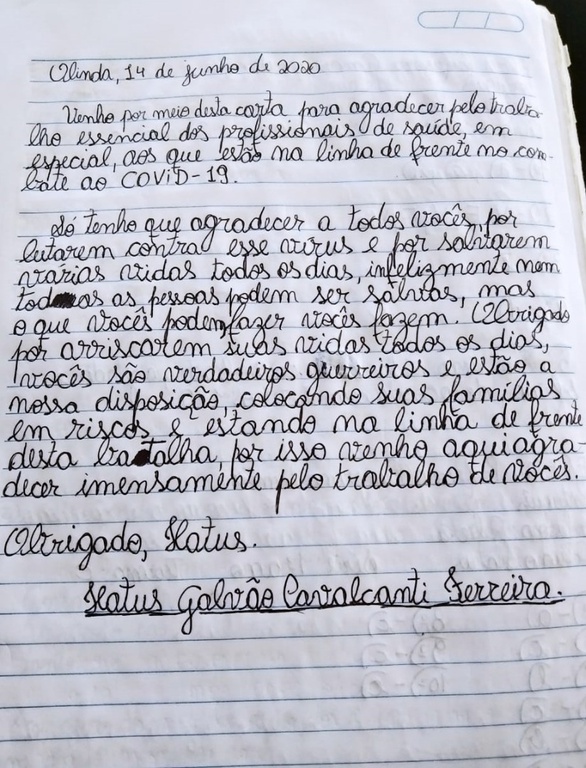 Olinda, 14 de junho de 2020
Venho por meio desta carta para agradecer pelo traba-
lho essencial dos profissionais de saúde, em
especial, aos que estão na linha de frente no com-
bate ao COViD-19.
Só tenho que agradecer a todos vocês, por
lutarem contra esse virus e por salvarem
varias vidas todos os dias, infelizmente nem
todas as pessoas podem ser salvas, mas
o que vocês podem fazer vocês fazem. Obrigado
por arriscarem suas vidas todos os dias,
vocês são verdadeiros guerreiros e estão a
nossa disposição, colocando suas famílias
em riscos e estando na linha de frente
desta batalha, por isso venho aqui agra-
decer imensamente pelo trabalho de vocês.
Obrigado, Hatus.
Hatus Galvão Cavalcanti Ferreira.